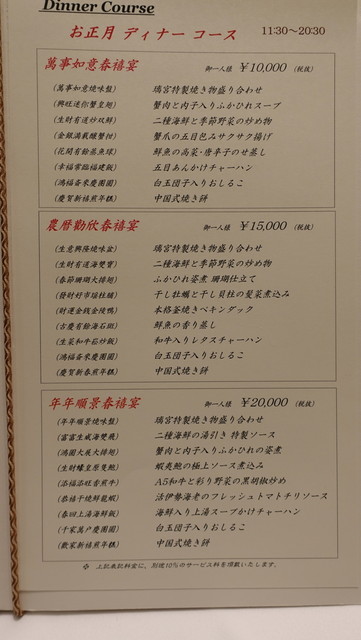 Dinner Course
お正月 ディナー コース 11:30～20:30
萬事如意春禧宴 御一人様 ￥10,000 (税抜)
(萬事如意燒味盤) 璃宮特製焼き物盛り合わせ
(興旺迷你蟹皇翅) 蟹肉と内子入りふかひれスープ
(生財有道炒双鮮) 二種海鮮と季節野菜の炒め物
(金銀滿載釀蟹拑) 蟹爪の五目包みサクサク揚げ
(花開有餘蒸魚球) 鮮魚の高菜・唐辛子のせ蒸し
(幸福常臨福建飯) 五目あんかけチャーハン
(鴻福齋來慶團圓) 白玉団子入りおしるこ
(慶賀新春煎年糕) 中国式焼き餅
農暦勸欣春禧宴 御一人様 ￥15,000 (税抜)
(生意興隆燒味盆) 璃宮特製焼き物盛り合わせ
(生財有道海雙寶) 二種海鮮と季節野菜の炒め物
(春節珊瑚大排翅) ふかひれ姿煮 珊瑚仕立て
(發財好市瑤柱脯) 干し牡蠣と干し貝柱の髪菜煮込み
(財運金錢金陵鴨) 本格釜焼きペキンダック
(古慶有餘海石斑) 鮮魚の香り蒸し
(生菜和牛菘炒飯) 和牛入りレタスチャーハン
(鴻福齋來慶團圓) 白玉団子入りおしるこ
(慶賀新春煎年糕) 中国式焼き餅
年年順景春禧宴 御一人様 ￥20,000 (税抜)
(年年順景燒味盤) 璃宮特製焼き物盛り合わせ
(富富生威海雙飛) 二種海鮮の湯引き 特製ソース
(鴻圖大展大排翅) 蟹肉と内子入りふかひれの姿煮
(生財蠔皇原隻鮑) 蝦夷鮑の極上ソース煮込み
(添福添旺香煎牛) A5和牛と彩り野菜の黒胡椒炒め
(恭禧干燒鮮龍蝦) 活伊勢海老のフレッシュトマトチリソース
(春回上湯海鮮飯) 海鮮入り上湯スープかけチャーハン
(千家萬戶慶團圓) 白玉団子入りおしるこ
(歡家新禧煎年糕) 中国式焼き餅
※ 上記表記料金に、別途10%のサービス料を頂戴いたします。